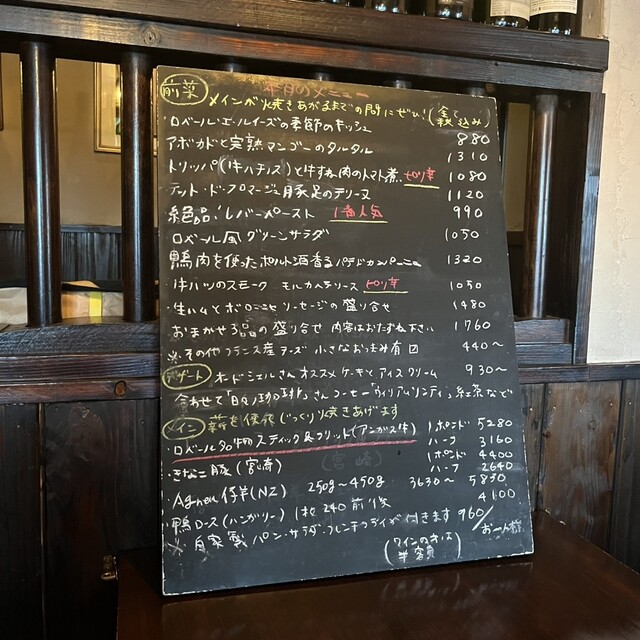 本日のメニュー
前菜 メインが焼きあがるまでの間にぜひ! (税込み)
・ロベール・エ・ルイーズの季節のキッシュ 880
アボカドと完熟マンゴーのタルタル 1310
トリッパ(牛ハチノス)と牛すね肉のトマト煮 1080
テット・ド・フロマージュ 豚足のテリーヌ 1120
絶品!レバーペースト 1番人気 990
ロベール風グリーンサラダ 1050
鴨肉を使ったポルト酒香るパテドカンパーニュ 1320
牛ハツのスモーク モルカヘテソース 1050
生ハムとボロニャソーセージの盛り合せ 1480
おまかせ3品の盛り合せ 内容はおたずね下さい 1760
※その他フランス産チーズ 小さなおつまみ有 440〜
デザート オードシエルさんオススメケーキとアイスクリーム 930〜
合わせて「日々ノ珈琲」さんコーヒー「ウィリアムソンティ」紅茶など
メイン 薪を使ってじっくり焼きあげます
・ロベールの牛のステック&フリット(アンガス牛) 1ポンド 5280
ハーフ 3160
・きなこ豚(宮崎) 1ポンド 4400
ハーフ 2640
・Agneau 仔羊(NZ) 250g〜450g 3630〜5850
・鴨ロース(ハンガリー) 1枚 240前後 4100
※自家製パン・サラダ・フレンチフライが付きます 960/お一人様
(ワインの方は半額)